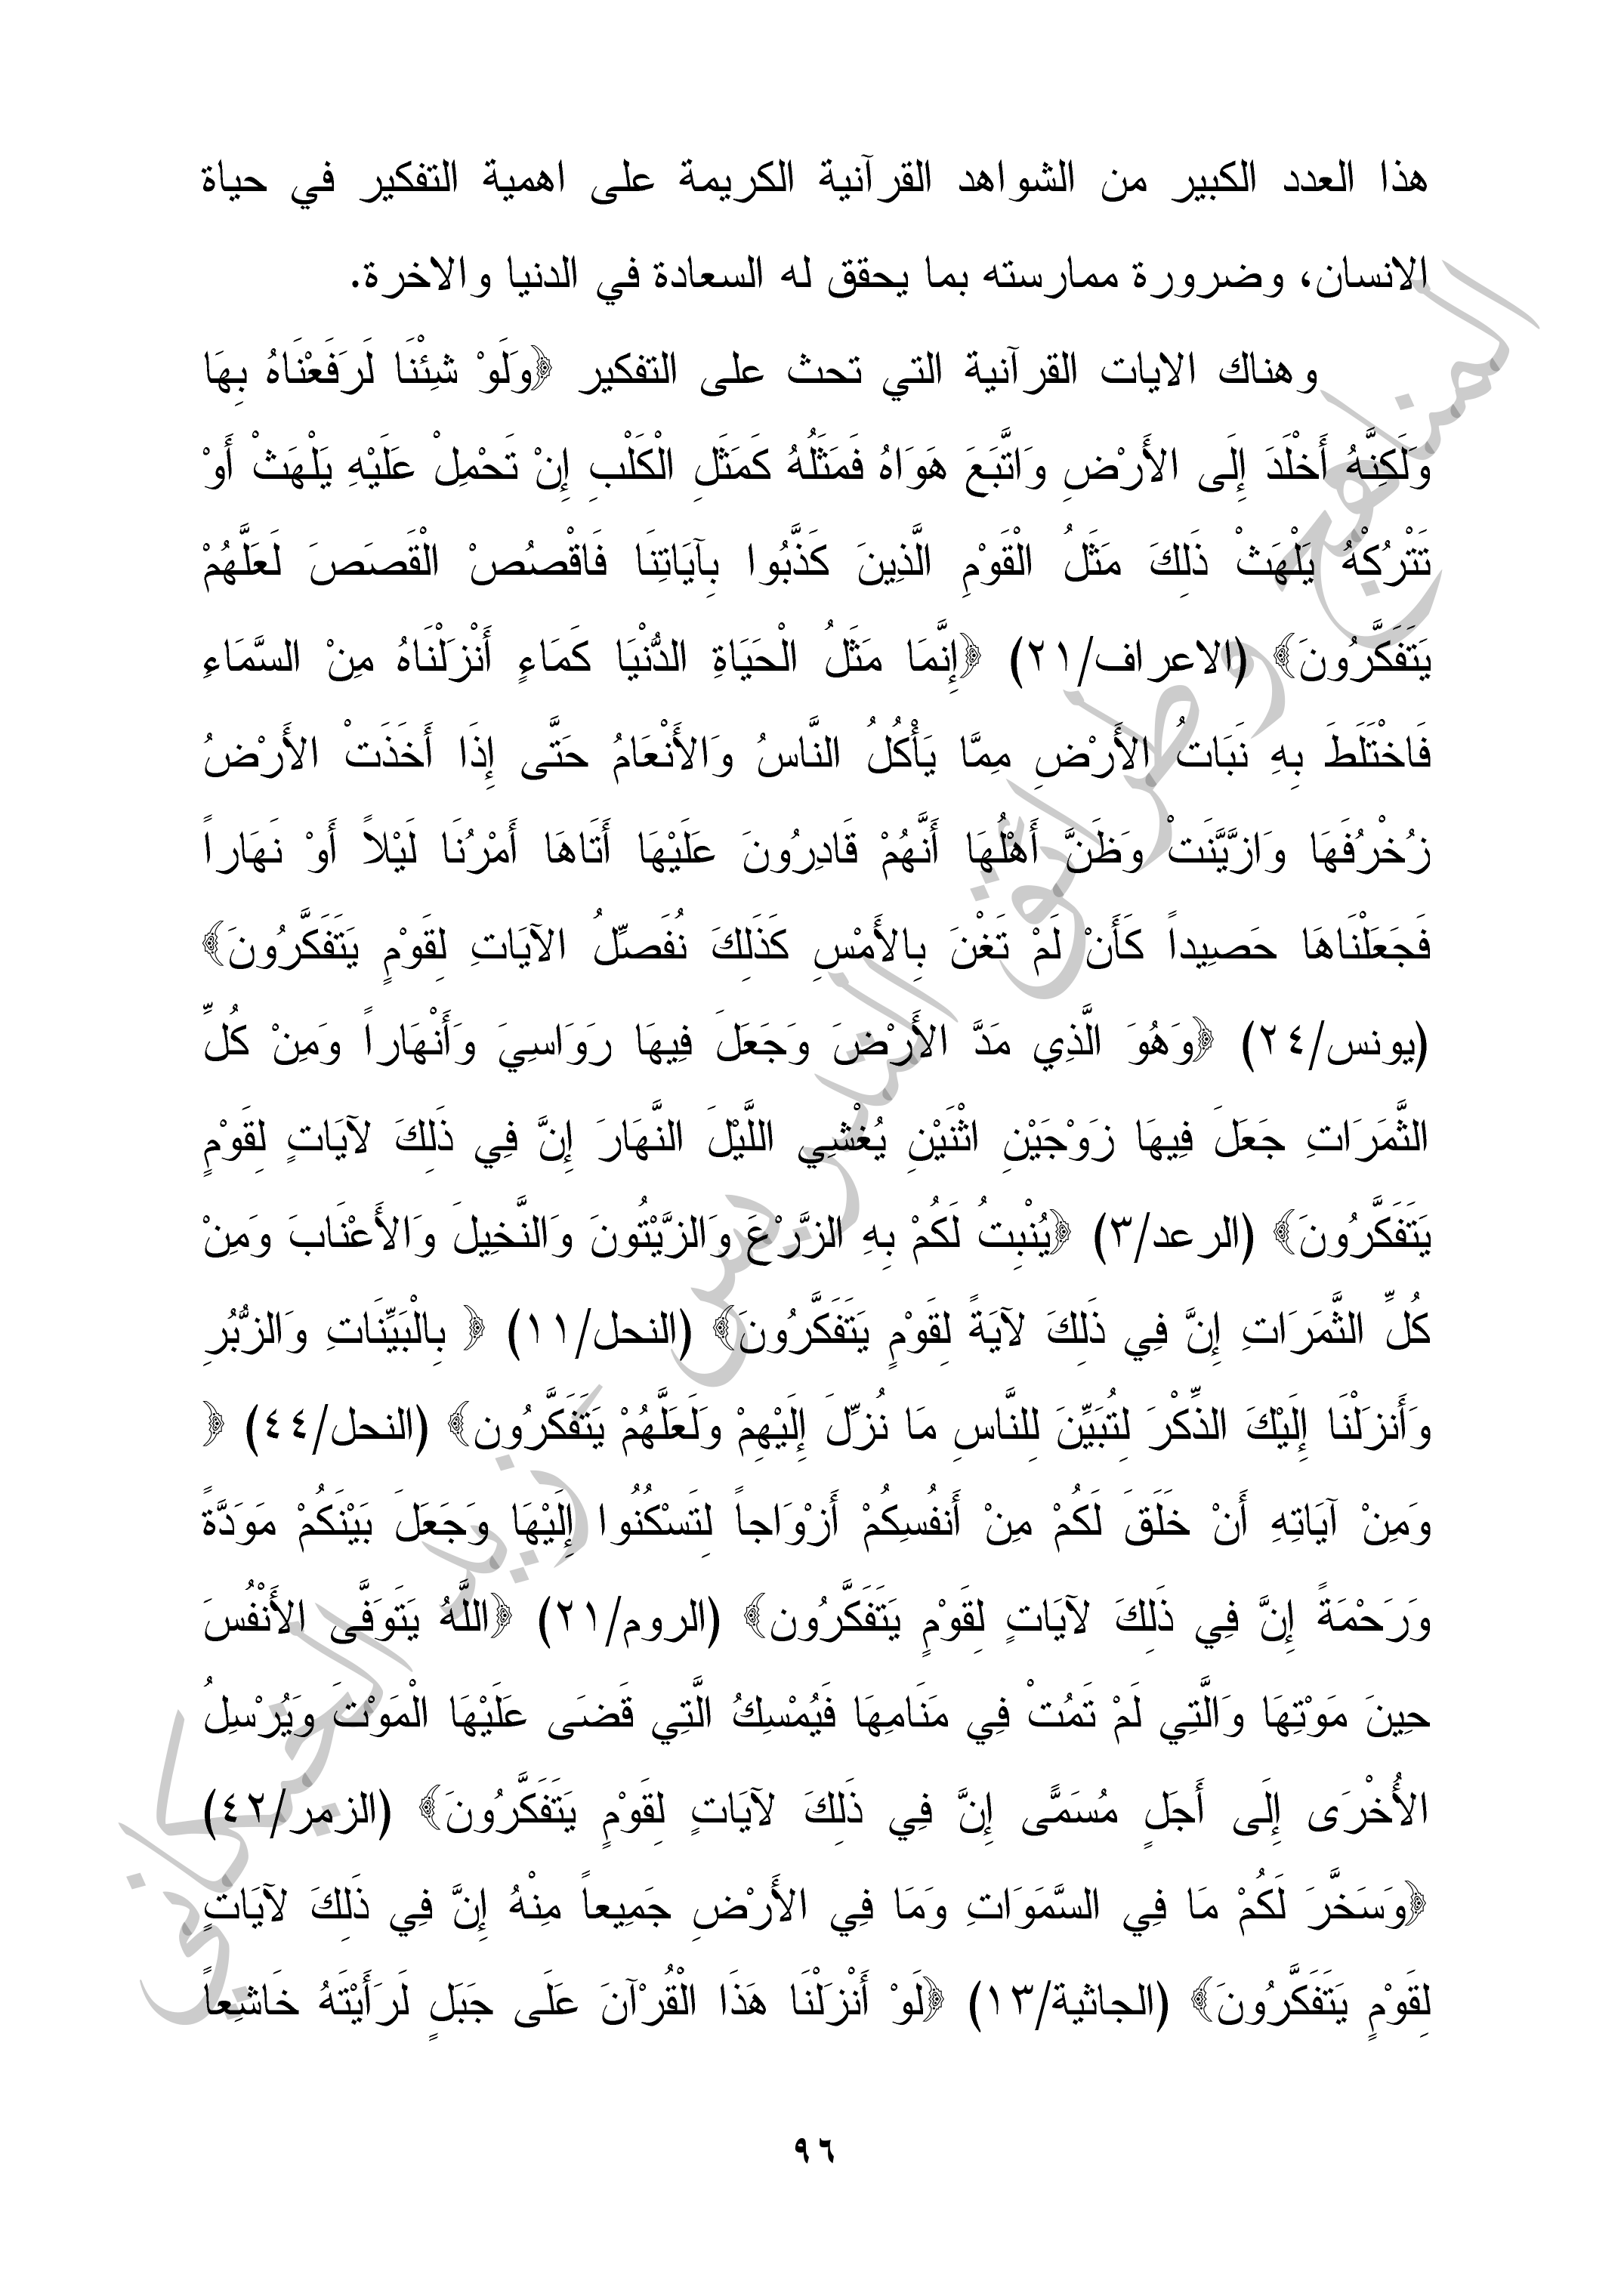 هذا العدد الكبير من الشواهد القرآنية الكريمة على اهمية التفكير في حياة
الانسان، وضرورة ممارسته بما يحقق له السعادة في الدنيا والاخرة.
وهناك الايات القرآنية التي تحث على التفكير ﴿وَلَوْ شِئْنَا لَرَفَعْنَاهُ بِهَا
وَلَكِنَّهُ أَخْلَدَ إِلَى الأَرْضِ وَاتَّبَعَ هَوَاهُ فَمَثَلُهُ كَمَثَلِ الْكَلْبِ إِنْ تَحْمِلْ عَلَيْهِ يَلْهَثْ أَوْ
تَتْرُكْهُ يَلْهَثْ ذَلِكَ مَثَلُ الْقَوْمِ الَّذِينَ كَذَّبُوا بِآيَاتِنَا فَاقْصُصْ الْقَصَصَ لَعَلَّهُمْ
يَتَفَكَّرُونَ﴾ (الاعراف/٢١) ﴿إِنَّمَا مَثَلُ الْحَيَاةِ الدُّنْيَا كَمَاءٍ أَنْزَلْنَاهُ مِنْ السَّمَاءِ
فَاخْتَلَطَ بِهِ نَبَاتُ الأَرْضِ مِمَّا يَأْكُلُ النَّاسُ وَالأَنْعَامُ حَتَّى إِذَا أَخَذَتْ الأَرْضُ
زُخْرُفَهَا وَازَّيَّنَتْ وَظَنَّ أَهْلُهَا أَنَّهُمْ قَادِرُونَ عَلَيْهَا أَتَاهَا أَمْرُنَا لَيْلاً أَوْ نَهَاراً
فَجَعَلْنَاهَا حَصِيداً كَأَنْ لَمْ تَغْنَ بِالأَمْسِ كَذَلِكَ نُفَصِّلُ الآيَاتِ لِقَوْمٍ يَتَفَكَّرُونَ﴾
(يونس/٢٤) ﴿وَهُوَ الَّذِي مَدَّ الأَرْضَ وَجَعَلَ فِيهَا رَوَاسِيَ وَأَنْهَاراً وَمِنْ كُلِّ
الثَّمَرَاتِ جَعَلَ فِيهَا زَوْجَيْنِ اثْنَيْنِ يُغْشِي اللَّيْلَ النَّهَارَ إِنَّ فِي ذَلِكَ لآيَاتٍ لِقَوْمٍ
يَتَفَكَّرُونَ﴾ (الرعد/٣) ﴿يُنْبِتُ لَكُمْ بِهِ الزَّرْعَ وَالزَّيْتُونَ وَالنَّخِيلَ وَالأَعْنَابَ وَمِنْ
كُلِّ الثَّمَرَاتِ إِنَّ فِي ذَلِكَ لآيَةً لِقَوْمٍ يَتَفَكَّرُونَ﴾ (النحل/١١) ﴿ بِالْبَيِّنَاتِ وَالزُّبُرِ
وَأَنزَلْنَا إِلَيْكَ الذِّكْرَ لِتُبَيِّنَ لِلنَّاسِ مَا نُزِّلَ إِلَيْهِمْ وَلَعَلَّهُمْ يَتَفَكَّرُون﴾ (النحل/٤٤) ﴿
وَمِنْ آيَاتِهِ أَنْ خَلَقَ لَكُمْ مِنْ أَنفُسِكُمْ أَزْوَاجاً لِتَسْكُنُوا إِلَيْهَا وَجَعَلَ بَيْنَكُمْ مَوَدَّةً
وَرَحْمَةً إِنَّ فِي ذَلِكَ لآيَاتٍ لِقَوْمٍ يَتَفَكَّرُون﴾ (الروم/٢١) ﴿اللَّهُ يَتَوَفَّى الأَنْفُسَ
حِينَ مَوْتِهَا وَالَّتِي لَمْ تَمُتْ فِي مَنَامِهَا فَيُمْسِكُ الَّتِي قَضَى عَلَيْهَا الْمَوْتَ وَيُرْسِلُ
الأُخْرَى إِلَى أَجَلٍ مُسَمًّى إِنَّ فِي ذَلِكَ لآيَاتٍ لِقَوْمٍ يَتَفَكَّرُونَ﴾ (الزمر/٤٢)
﴿وَسَخَّرَ لَكُمْ مَا فِي السَّمَوَاتِ وَمَا فِي الأَرْضِ جَمِيعاً مِنْهُ إِنَّ فِي ذَلِكَ لآيَاتٍ
لِقَوْمٍ يَتَفَكَّرُونَ﴾ (الجاثية/١٣) ﴿لَوْ أَنْزَلْنَا هَذَا الْقُرْآنَ عَلَى جَبَلٍ لَرَأَيْتَهُ خَاشِعاً
٩٦
المناهج وطرائق التدريس زيد الخيكاني